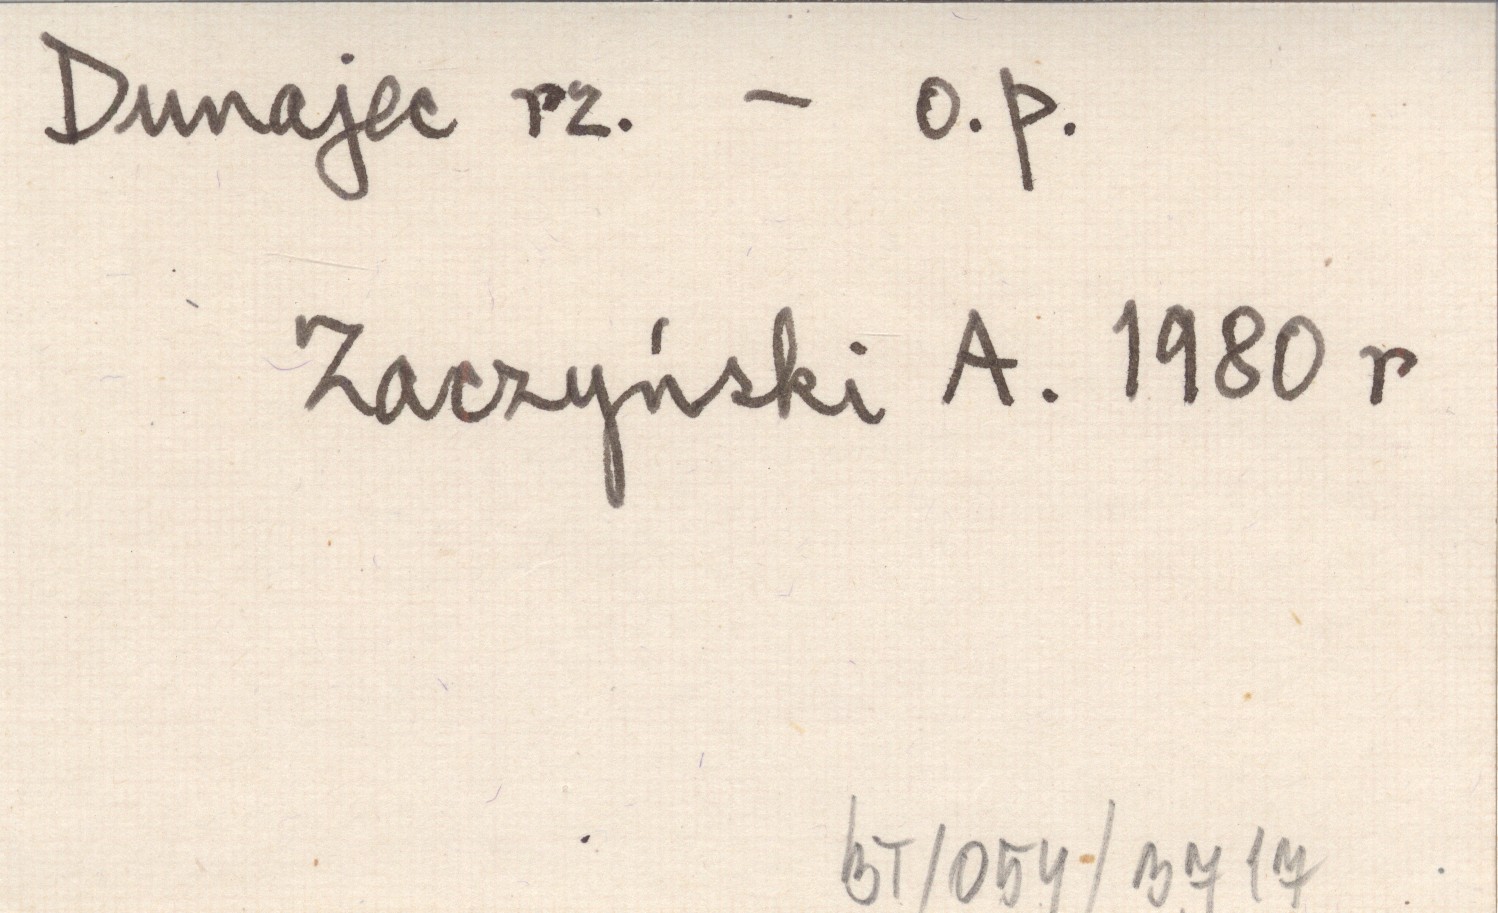 Dunajec rz. - o.p.
Zaczyński A. 1980 r
BT/054/3717